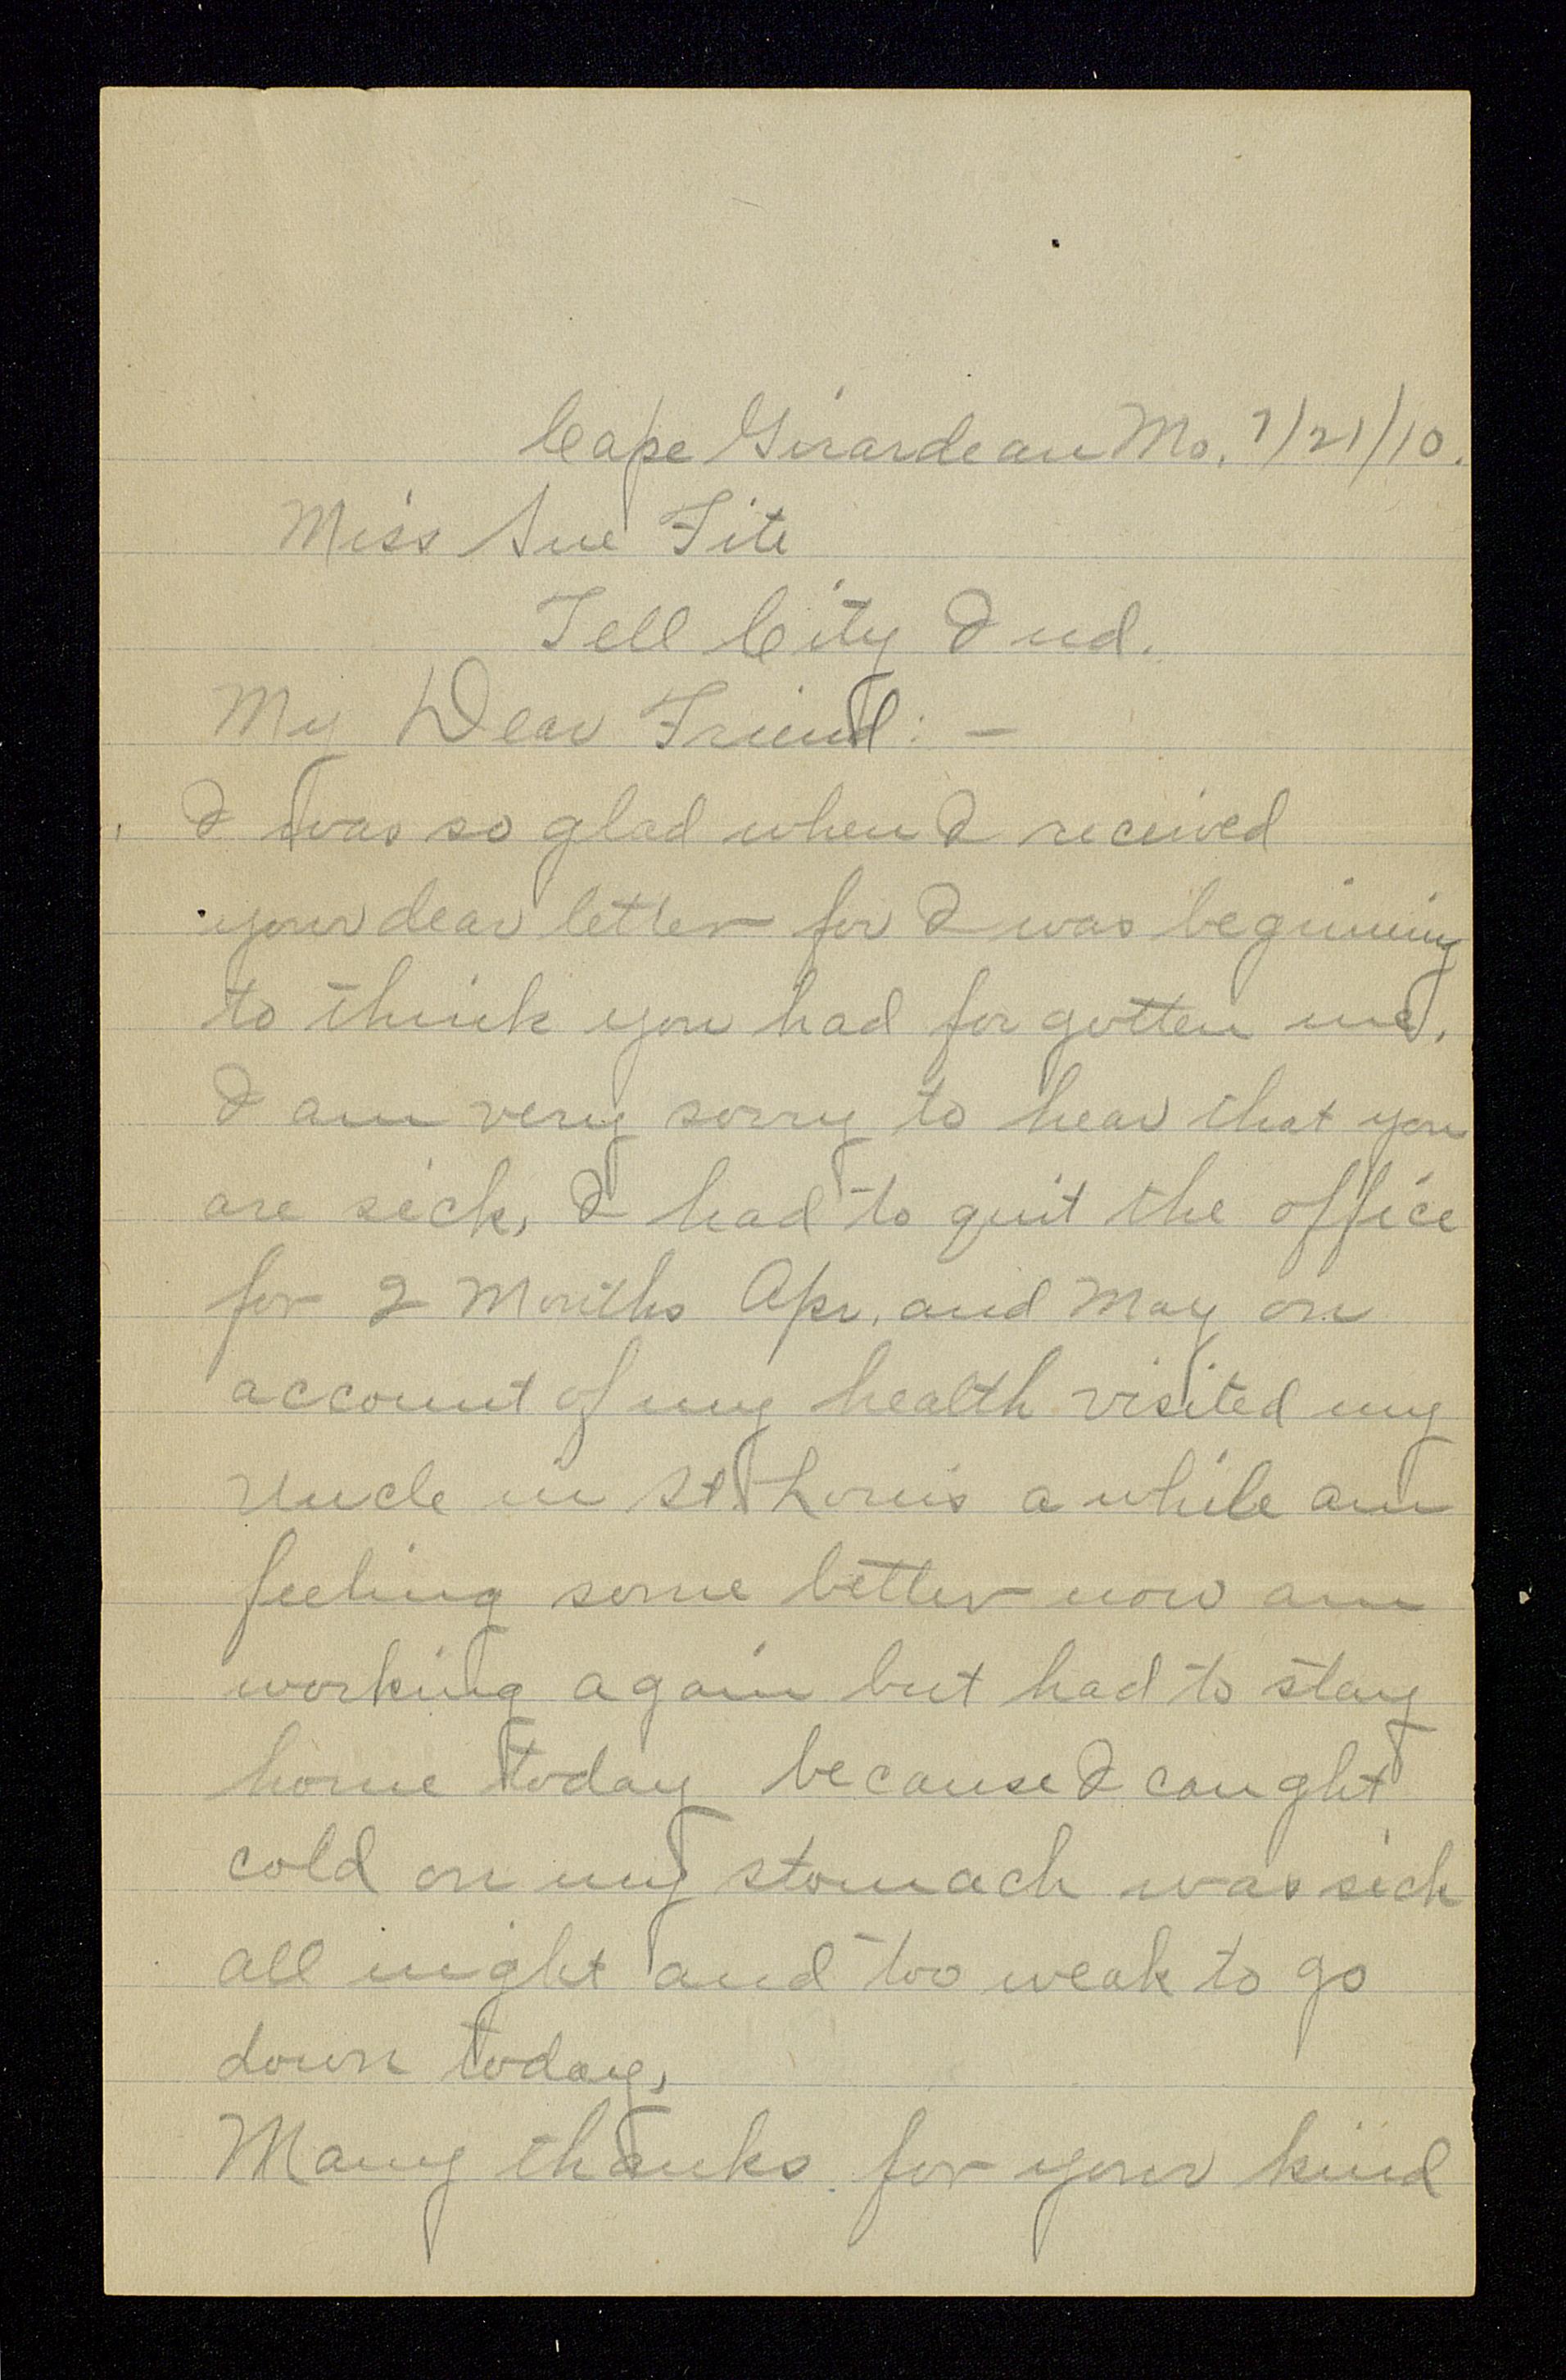 Cape Girardeau Mo. 7/21/10.
Miss Sue Fite
Tell City Ind.
My Dear Friend: -
I was so glad when I received
your dear letter for I was beginning
to think you had forgotten me.
I am very sorry to hear that you
are sick, I had to quit the office
for 2 Months Apr. and May on
account of my health visited my
Uncle in St. Louis a while am
feeling some better now am
working again but had to stay
home today because I caught
cold on my stomach was sick
all night and too weak to go
down today,
Many thanks for your kind